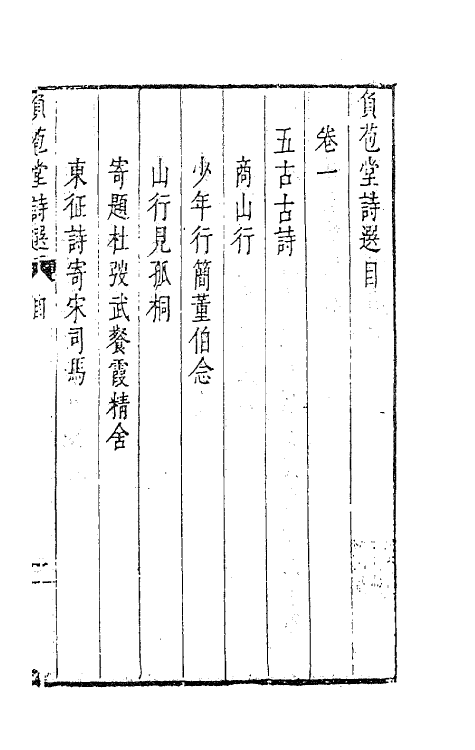 負苞堂詩選目
卷一
五古古詩
商山行
少年行簡董伯念
山行見孤桐
寄題杜弢武餐霞精舍
東征詩寄宋司馬
負苞堂詩選 目
一